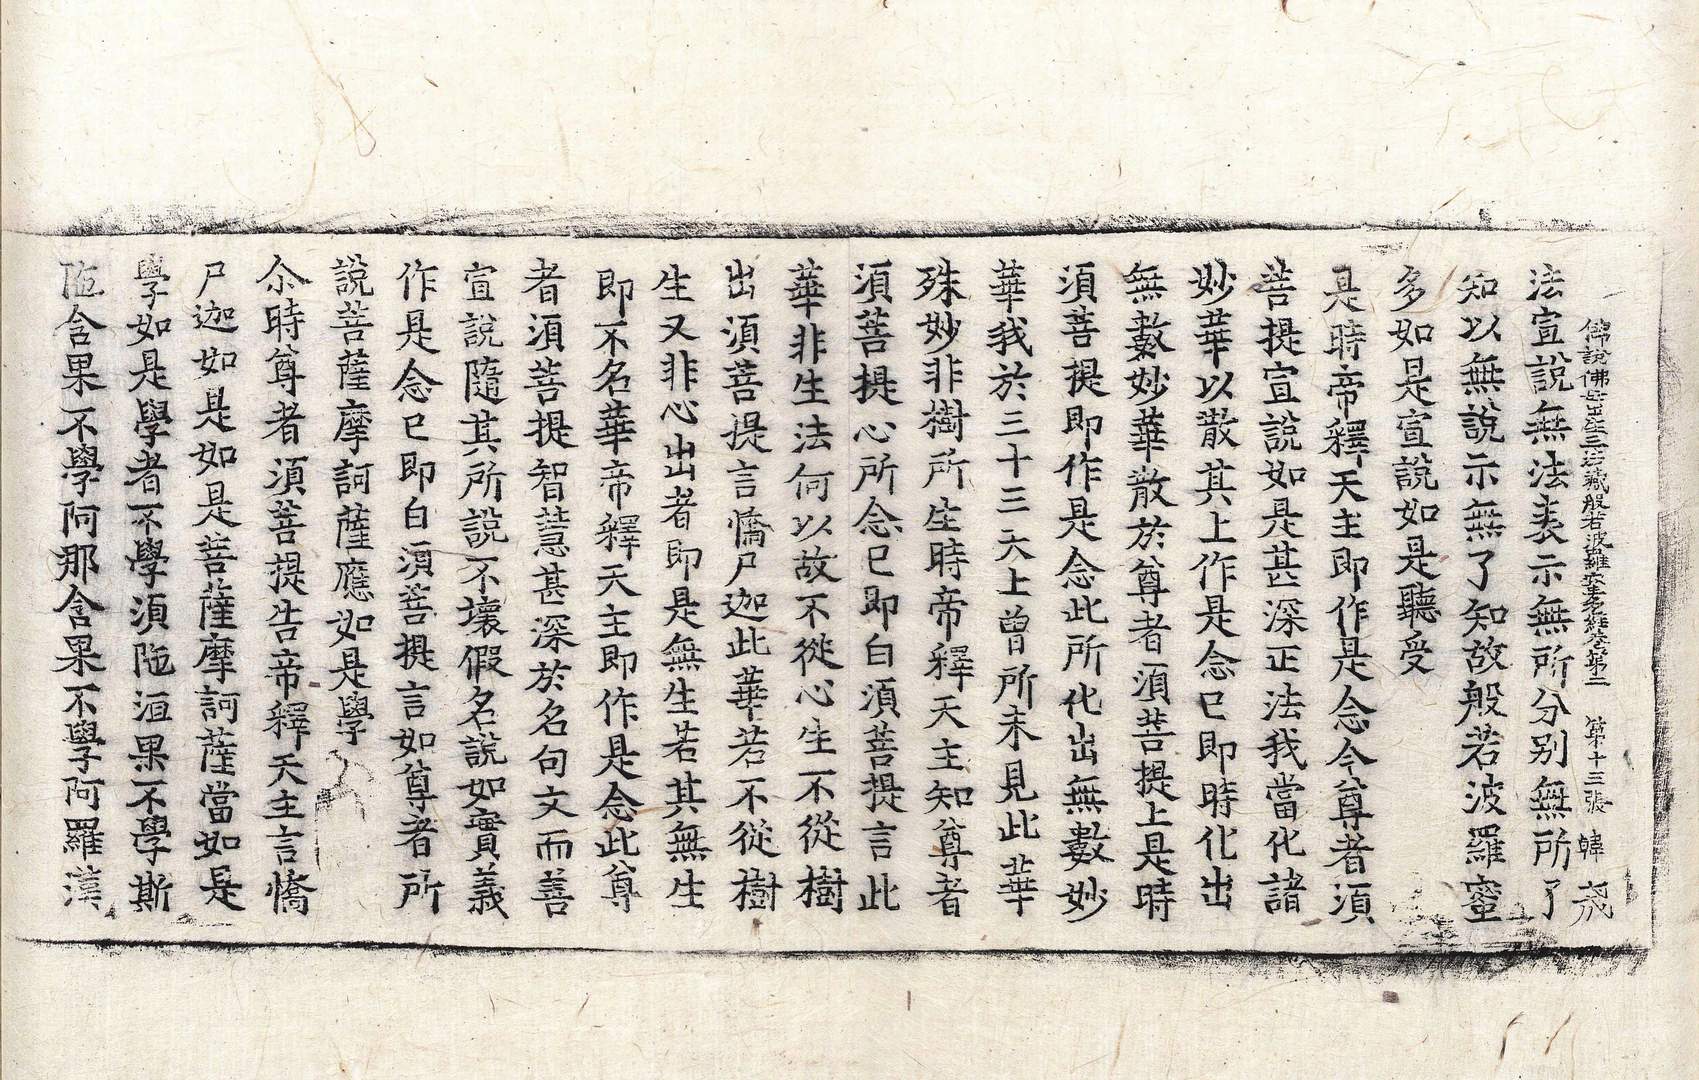 佛說佛母出生三法藏般若波羅蜜多經卷第二 第十三張 韓
法宣說無法表示無所分別無所了
知以無說示無了知故般若波羅蜜
多如是宣說如是聽受
是時帝釋天主即作是念今尊者須
菩提宣說如是甚深正法我當化諸
妙華以散其上作是念已即時化出
無數妙華散於尊者須菩提上是時
須菩提即作是念此所化出無數妙
華我於三十三天上曾所未見此華
殊妙非樹所生時帝釋天主知尊者
須菩提心所念已即白須菩提言此
華非生法何以故不從心生不從樹
出須菩提言憍尸迦此華若不從樹
生又非心出者即是無生若其無生
即不名華帝釋天主即作是念此尊
者須菩提智慧甚深於名句文而善
宣說隨其所說不壞假名說如實義
作是念已即白須菩提言如尊者所
說菩薩摩訶薩應如是學
尒時尊者須菩提告帝釋天主言憍
尸迦如是如是菩薩摩訶薩當如是
學如是學者不學須陁洹果不學斯
陁含果不學阿那含果不學阿羅漢